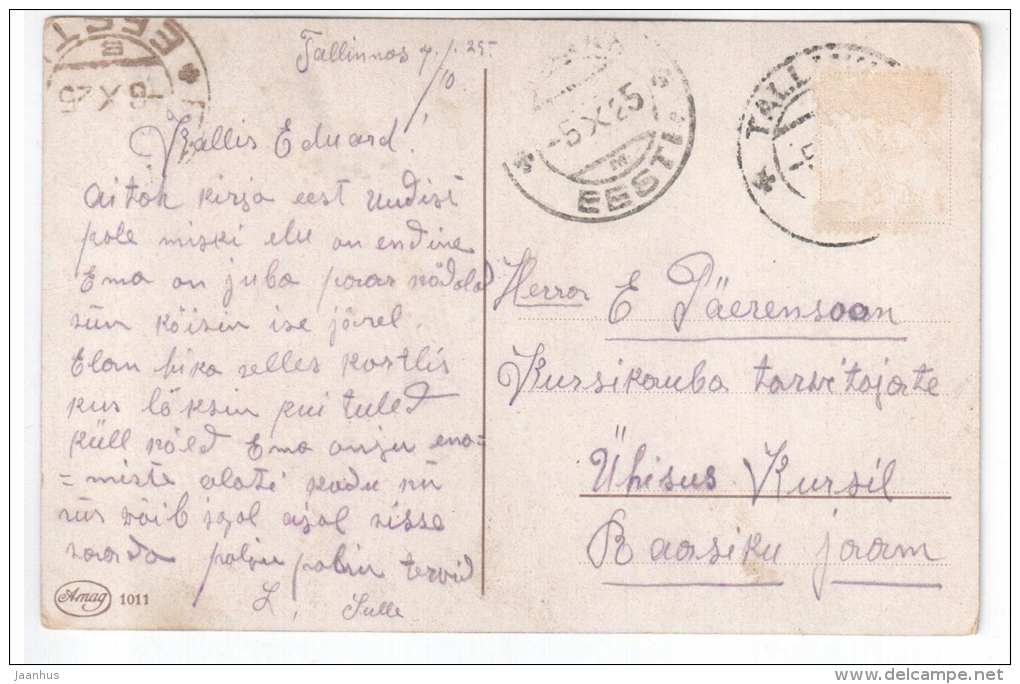 Tallinnas 4/10 25
Kallis Eduard!
Aitäh kirja eest Uudist
pole miski elu on endine
Ema on juba paar nädalad
siin käisin ise järel.
Elan ikka selles kortlis
kus läksin kui tuled
küll näed Ema on ju ena=
=miste alati kodu nii
siis võib igal ajal sisse
saada palju palju tervid
Sulle
Herra E Päerensoon
Kursikauba tarvitajate
Ühisus Kursil
Raasiku jaam
EEST
B
-6 X 25
-5 X 25
M
EESTI
TALL
Amag 1011
jaanhus
www.delcampe.net